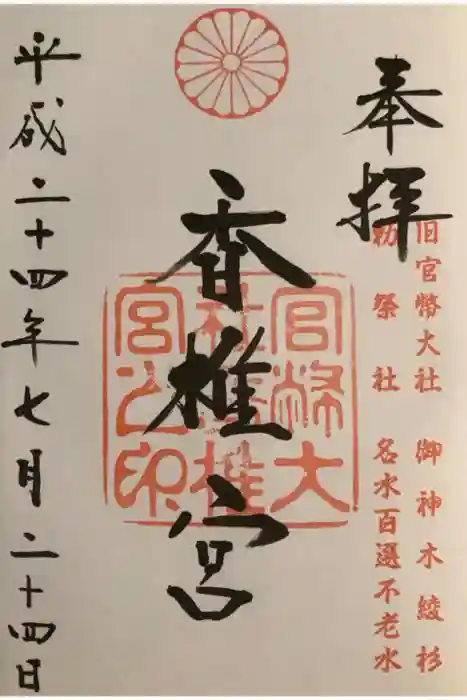 奉拝
旧官幣大社 御神木綾杉
勅祭社 名水百選不老水
香椎宮
官幣大社香椎宮之印
平成二十四年七月二十四日